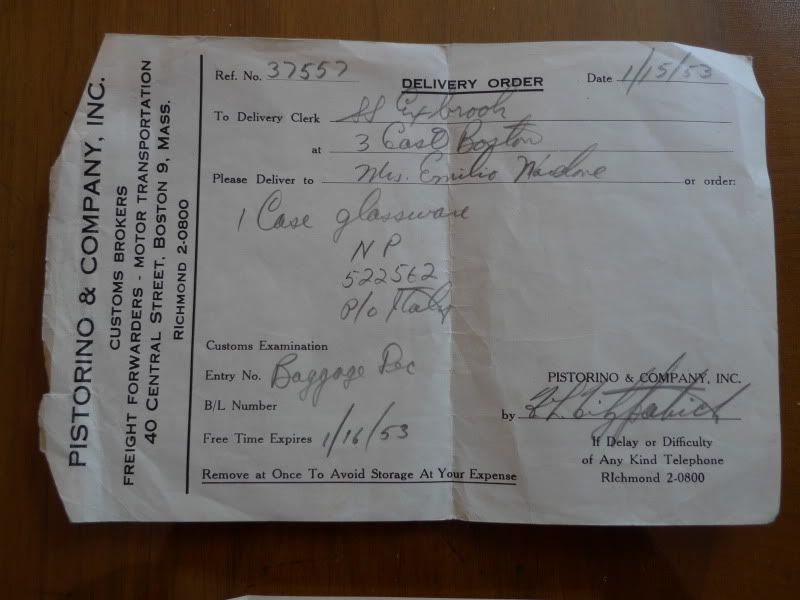 PISTORINO & COMPANY, INC.
CUSTOMS BROKERS
FREIGHT FORWARDERS - MOTOR TRANSPORTATION
40 CENTRAL STREET, BOSTON 9, MASS.
RICHMOND 2-0800
Ref. No. 37557 DELIVERY ORDER Date 1/15/53
To Delivery Clerk SS Exbrook
at 3 East Boston
Please Deliver to Mrs. Emilio Nardone or order:
1 Case glassware
NP
522562
p/o Italy
Customs Examination
Entry No. Baggage Dec
B/L Number
Free Time Expires 1/16/53
Remove at Once To Avoid Storage At Your Expense
PISTORINO & COMPANY, INC.
by
If Delay or Difficulty
of Any Kind Telephone
RIchmond 2-0800